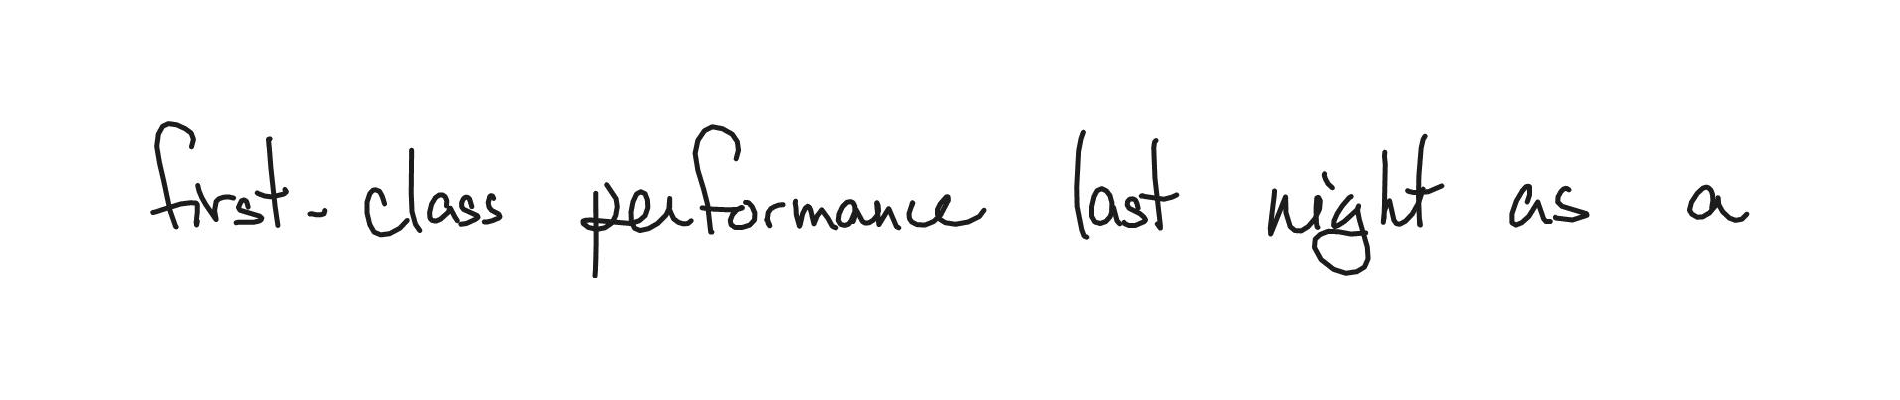 first-class performance last night as a